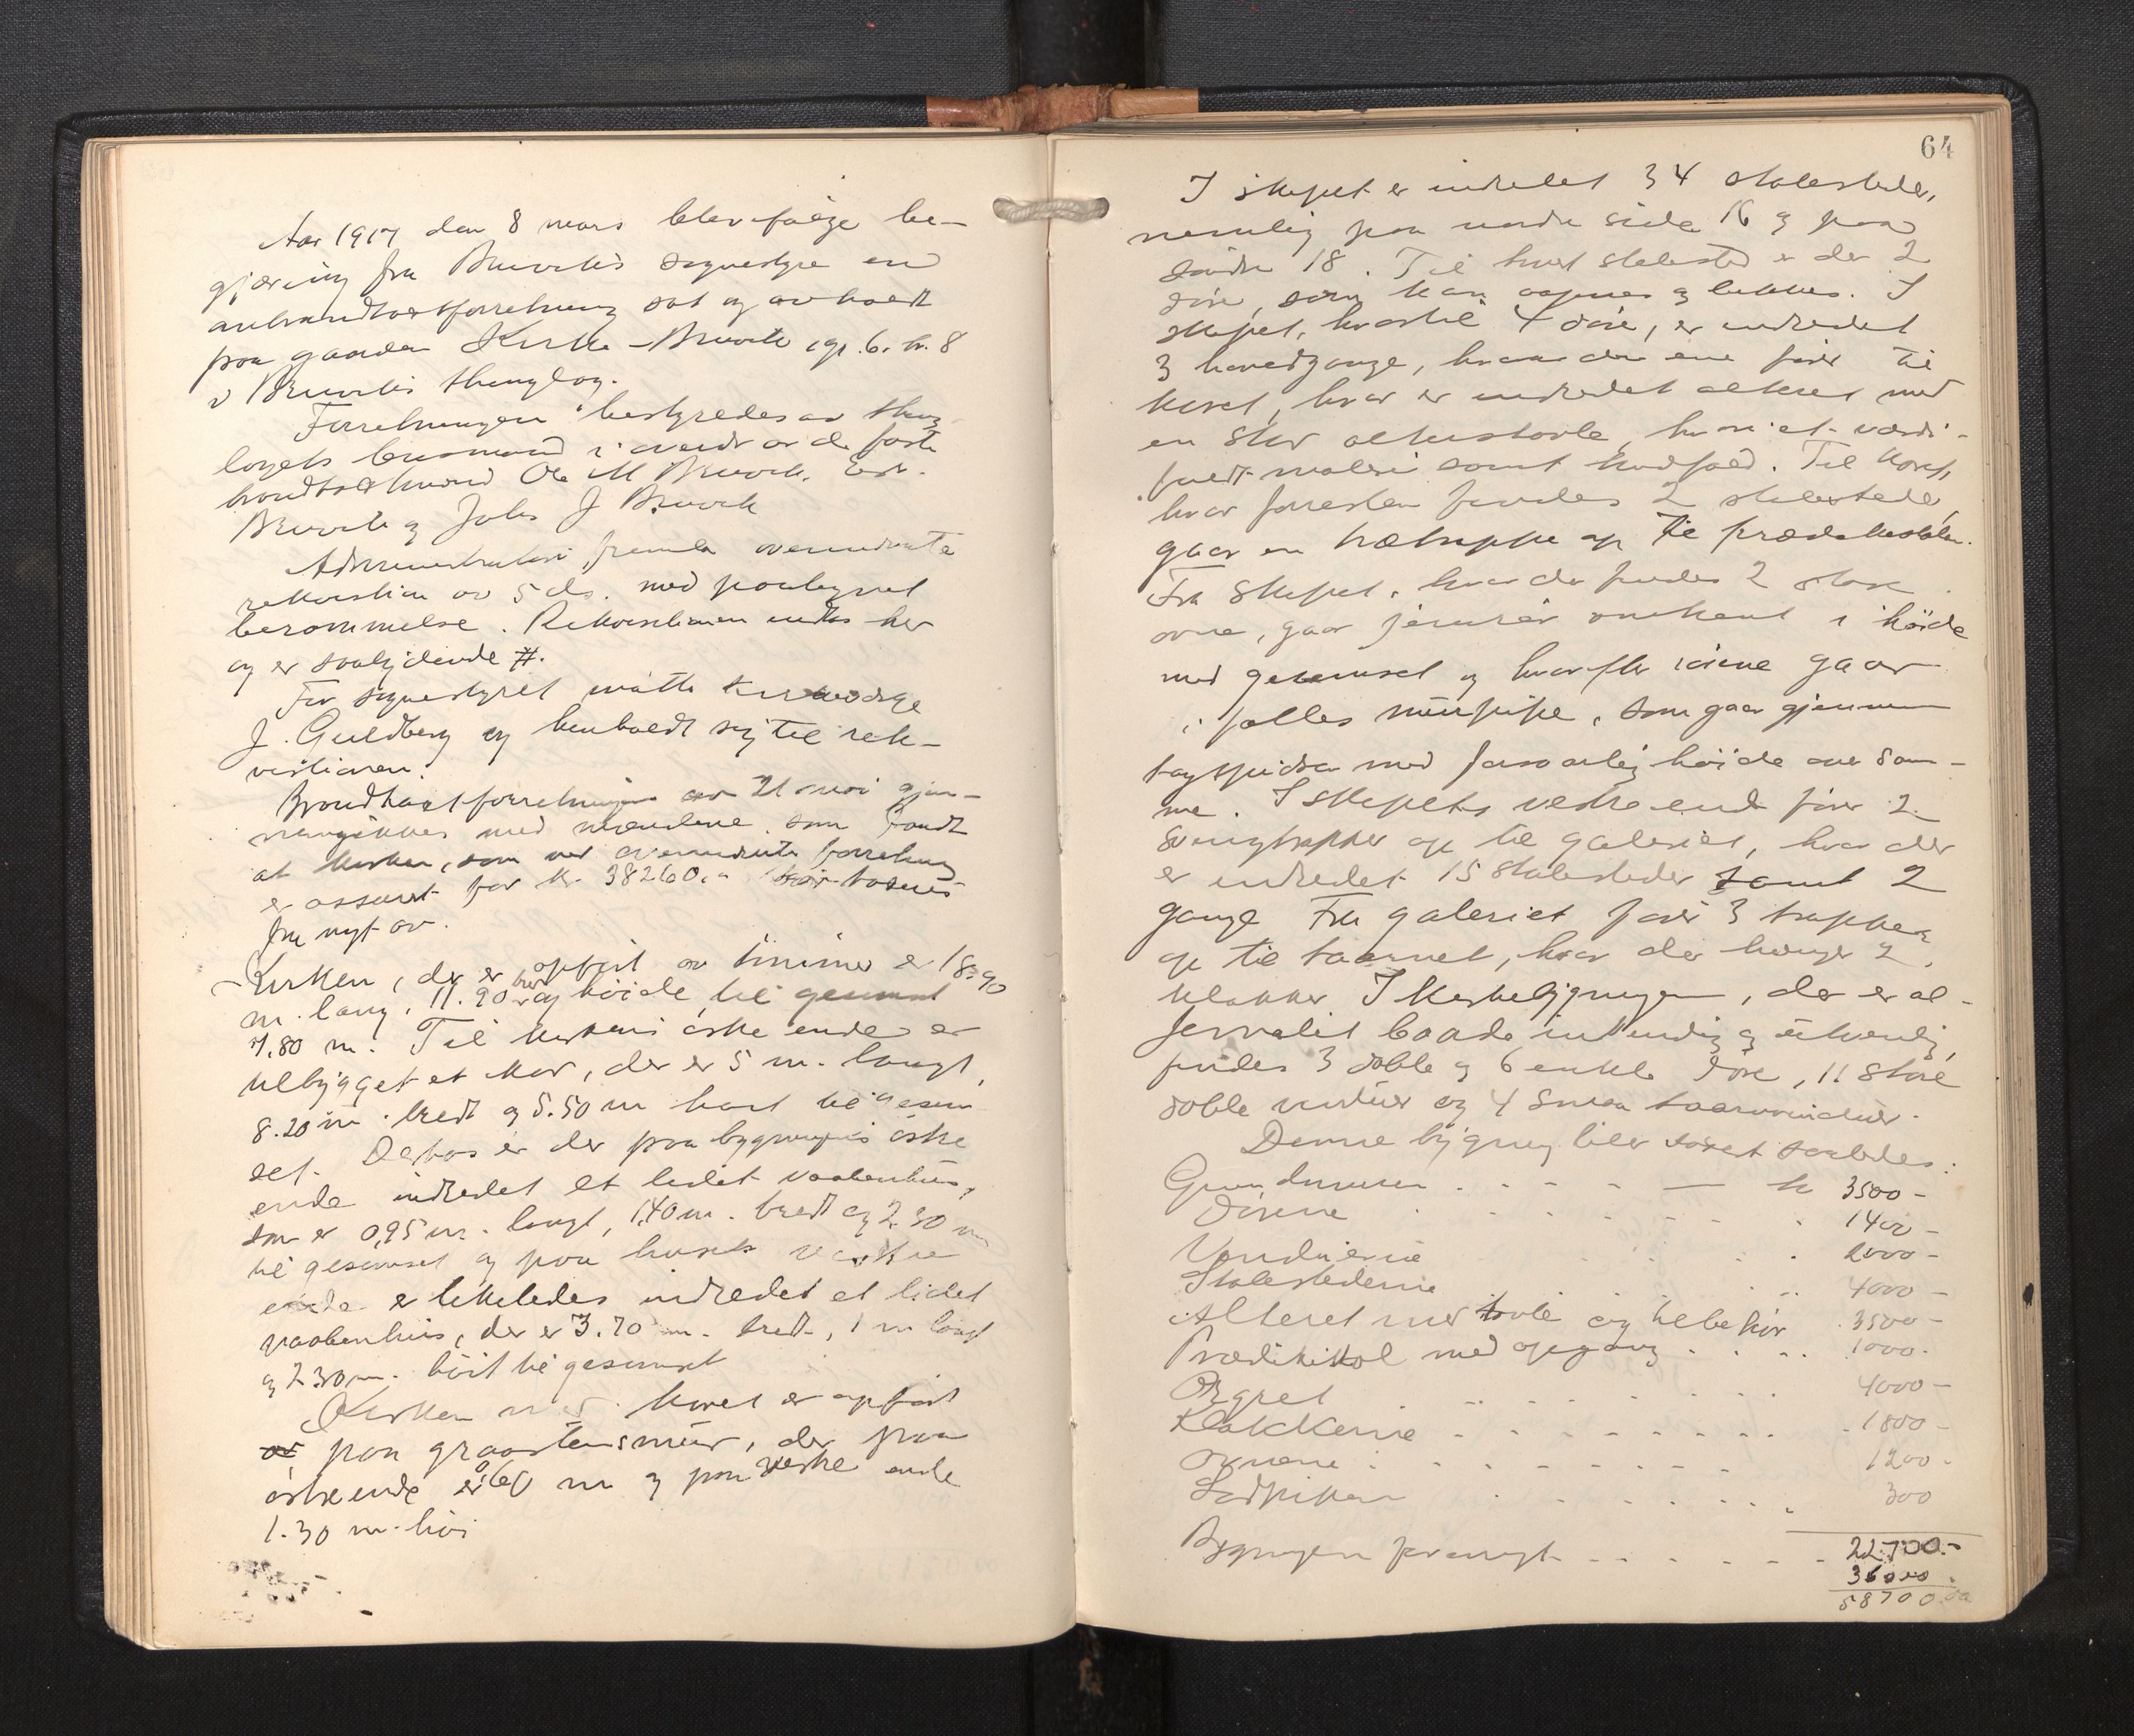 Aar 1917 den 8 mars blev ifølge be-
gjæring fra Bruvik's sognestyre en
anbrandtakstforretning sat og avholdt
paa gaarden Kirke-Bruvik, gr. 6. br. 8
i Bruvik's thinglag.
Forretningen bestyredes av thing
lagets lensmand i overvær av de faste
brandtakstmænd Ole M Bruvik,
Bruvik og Johs J Bruvik
Administrator fremla ovennævnte
rekvisition av 5 ds. med paategnet
berammelse. Rekvisitionen indtas her
og er saalydende #.
For sognestyret møtte kirkeværge
J. Guldberg og henholdt sig til rek-
visitionen.
Brandtakstforretningen av 21 mai gjen-
nemgikkes med mændene, som fandt
at kirken, som ved ovennævnte forretning
er assuret for kr. 38260,- bør takseres
fra nyt av.
Kirken, der er opført av timmer er 18.90
m. lang, 11.90 bred og høide til gesimset
7,80 m. Til kirkens østre ende er
tilbygget et kor, der er 5 m. langt,
8.20 m. bredt og 5.50 m høit til gesim
set. Desfor er der paa bygningens østre
ende indredet et lidet vaabenhus,
som er 0,95 m. langt, 1,40 m. bredt og 2.30 m
til gesimset og paa husets vestre
ende er likeledes indredet et lidet
vaabenhus, der er 3.70 m. bredt, 1 m langt
og 2.30 m. høit til gesimset
Kirken med koret er opført
av paa graastensmur, der paa
østre ende er 0,60 m og paa vestre ende
1.30 m. høi
64
I skipet er indredet 34 stolesteder,
nemlig paa nordre side 16 og paa
søndre 18. Til hvert stolested er der 2
døre, som kan aapnes og lukkes. I
skipet, hvortil 4 døre, er indredet
3 hovedgange, hvorav den ene fører til
koret, hvor er indredet alteret med
en stor altertavle, hvori et værdi-
fuldt maleri samt knæfald. Til koret,
hvor forresten findes 2 stolesteder,
gaar en trætrappe op til prædikestolen.
Fra skipet, hvor der findes 2 store
ovne, gaar jernrør omkrent i høide
med gesimset og hvorfter rørene gaar
i fælles murpipe, som gaar gjennem
tagspidsen med forsvarlig høide over sam-
me. I skipets vestre ende fører 2
svingtrapper op til galeriet, hvor der
er indredet 15 stolesteder samt 2
gange Fra galeriet fører 3 trapper
op til taarnet, hvor der hænger 2
klokker I kirkebygningen, der er ol-
jemalet baade indvendig og utvendig,
findes 3 doble og 6 enkle døre, 11 store
doble vinduer og 4 smaa taarnvinduer.
Denne bygning blev taxert saaledes:
Grundmuren . - - - — kr 3500 -
Dørene . . - - - - . 1400 -
Vinduerne . . . . 2000 -
Stolestederne . . . .. 4000 -
Alteret med tavle og tilbehør . 3500 -
Prædikestol med opgang . . . . 1000.
Orgel .. - - - . . . 4000 -
Klokkerne - - - - - - - . . . 1800 -
Ovnene . - - - - - - - 1200 -
Lødpiken . - . - . - . . 300
Bygningen forøvrigt - - - - - - - 22700.-
36000.
58700.00